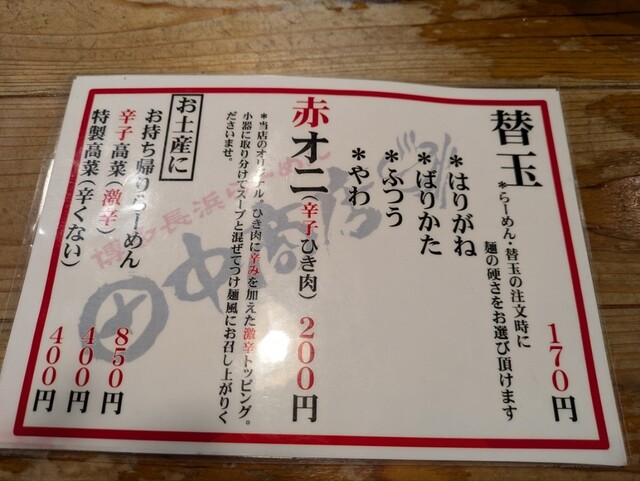 替玉 170円
*らーめん・替玉の注文時に
麺の硬さをお選び頂けます
*はりがね
*ばりかた
*ふつう
*やわ
赤オニ(辛子ひき肉) 200円
*当店のオリジナル ひき肉に辛みを加えた激辛トッピング。
小器に取り分けてスープと混ぜてつけ麺風にお召し上がりく
ださいませ。
お土産に
お持ち帰りらーめん 850円
辛子高菜(激辛) 400円
特製高菜(辛くない) 400円
博多長浜らーめん
田中商店